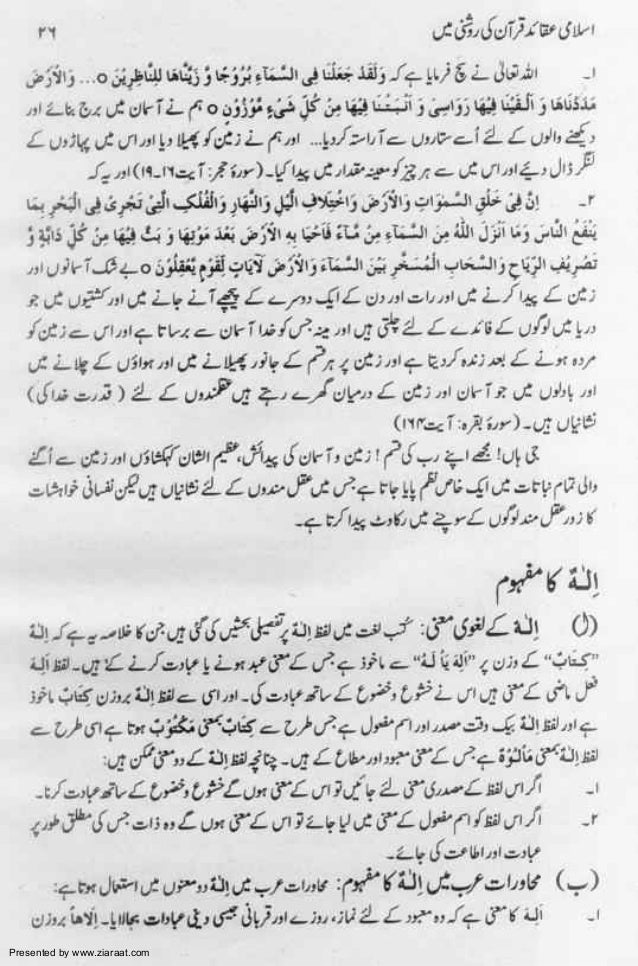 ۲۶ اسلامی عقائد قرآن کی روشنی میں
۱۔ اللہ تعالیٰ نے سچ فرمایا ہے کہ وَلَقَدْ جَعَلْنَا فِی السَّمَآءِ بُرُوْجًا وَّ زَیَّنَّاهَا لِلنَّاظِرِیْنَ o... وَالْاَرْضَ
مَدَدْنَاهَا وَ اَلْقَیْنَا فِیْهَا رَوَاسِیَ وَ اَنْبَتْنَا فِیْهَا مِنْ كُلِّ شَیْءٍ مَّوْزُوْنٍ o ہم نے آسمان میں برج بنائے اور
دیکھنے والوں کے لئے اُسے ستاروں سے آراستہ کردیا... اور ہم نے زمین کو پھیلا دیا اور اس میں پہاڑوں کے
لنگر ڈال دیئے اور اس میں سے ہر چیز کو معینہ مقدار میں پیدا کیا۔ (سورۂ حجر: آیت ۱۶۔۱۹) اور یہ کہ
۲۔ اِنَّ فِیْ خَلْقِ السَّمٰوَاتِ وَالْاَرْضِ وَاخْتِلَافِ الَّیْلِ وَالنَّهَارِ وَالْفُلْكِ الَّتِیْ تَجْرِیْ فِی الْبَحْرِ بِمَا
یَنْفَعُ النَّاسَ وَمَا اَنْزَلَ اللّٰهُ مِنَ السَّمَآءِ مِنْ مَّآءٍ فَاَحْیَا بِهِ الْاَرْضَ بَعْدَ مَوْتِهَا وَ بَثَّ فِیْهَا مِنْ كُلِّ دَابَّةٍ وَّ
تَصْرِیْفِ الرِّیَاحِ وَالسَّحَابِ الْمُسَخَّرِ بَیْنَ السَّمَآءِ وَالْاَرْضِ لَاٰیَاتٍ لِّقَوْمٍ یَّعْقِلُوْنَ o بے شک آسمانوں اور
زمین کے پیدا کرنے میں اور رات اور دن کے ایک دوسرے کے پیچھے آنے جانے میں اور کشتیوں میں جو
دریا میں لوگوں کے فائدے کے لئے چلتی ہیں اور مینہ جس کو خدا آسمان سے برساتا ہے اور اس سے زمین کو
مردہ ہونے کے بعد زندہ کردیتا ہے اور زمین پر ہر قسم کے جانور پھیلانے میں اور ہواؤں کے چلانے میں
اور بادلوں میں جو آسمان اور زمین کے درمیان گھرے رہتے ہیں عقلمندوں کے لئے (قدرت خدا کی)
نشانیاں ہیں۔ (سورۂ بقرہ: آیت ۱۶۴)
جی ہاں! مجھے اپنے رب کی قسم! زمین و آسمان کی پیدائش، عظیم الشان کہکشاؤں اور زمین سے اُگنے
والی تمام نباتات میں ایک خاص نظم پایا جاتا ہے جس میں عقل مندوں کے لئے نشانیاں ہیں لیکن نفسانی خواہشات
کا زور عقل مند لوگوں کے سوچنے میں رکاوٹ پیدا کرتا ہے۔
اِلٰـهٌ کا مفہوم
(ا) اِلٰـهٌ کے لغوی معنی: کُتب لغت میں لفظ اِلٰـهٌ پر تفصیلی بحثیں کی گئی ہیں جن کا خلاصہ یہ ہے کہ اِلٰـهٌ
"كِتَابٌ" کے وزن پر "اَلِهَ یَأْلَهُ" سے ماخوذ ہے جس کے معنی عبد ہونے یا عبادت کرنے کے ہیں۔ لفظ اَلِهَ
فعل ماضی کے معنی ہیں اس نے خشوع و خضوع کے ساتھ عبادت کی۔ اور اسی سے لفظ اِلٰـهٌ بروزن كِتَابٌ ماخوذ
ہے اور لفظ اِلٰـهٌ بیک وقت مصدر اور اسم مفعول ہے جس طرح سے كِتَابٌ بمعنی مَكْتُوْبٌ ہوتا ہے اسی طرح سے
لفظ اِلٰـهٌ بمعنی مَأْلُوْهٌ ہے جس کے معنی معبود اور مطاع کے ہیں۔ چنانچہ لفظ اِلٰـهٌ کے دو معنی ممکن ہیں:
۱۔ اگر اس لفظ کے مصدری معنی لئے جائیں تو اس کے معنی ہوں گے خشوع و خضوع کے ساتھ عبادت کرنا۔
۲۔ اگر اس لفظ کو اسم مفعول کے معنی میں لیا جائے تو اس کے معنی ہوں گے وہ ذات جس کی مطلق طور پر
عبادت اور اطاعت کی جائے۔
(ب) محاورات عرب میں اِلٰـهٌ کا مفہوم: محاورات عرب میں اِلٰـهٌ دو معنوں میں استعمال ہوتا ہے:
۱۔ اَلِهَ کا معنی ہے کہ وہ معبود کے لئے نماز، روزے اور قربانی جیسی دینی عبادات بجالایا۔ اِلَاهًا بروزن
Presented by www.ziaraat.com